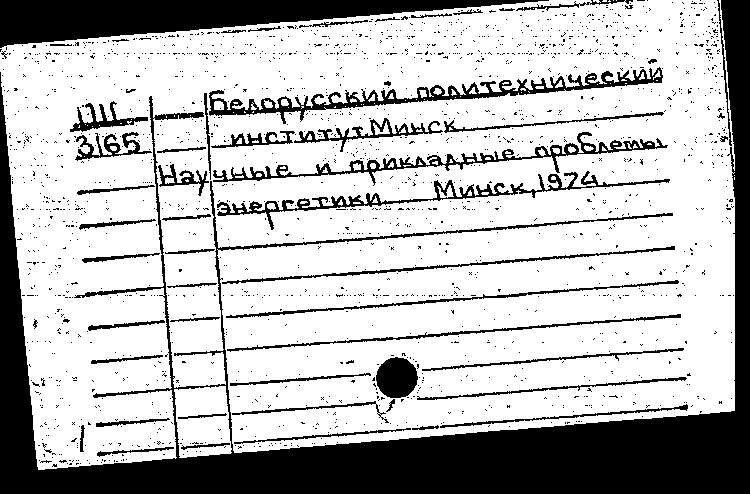 ПII Белорусский политехнический
3165 институт. Минск.
Научные и прикладные проблемы
энергетики. Минск, 1974.